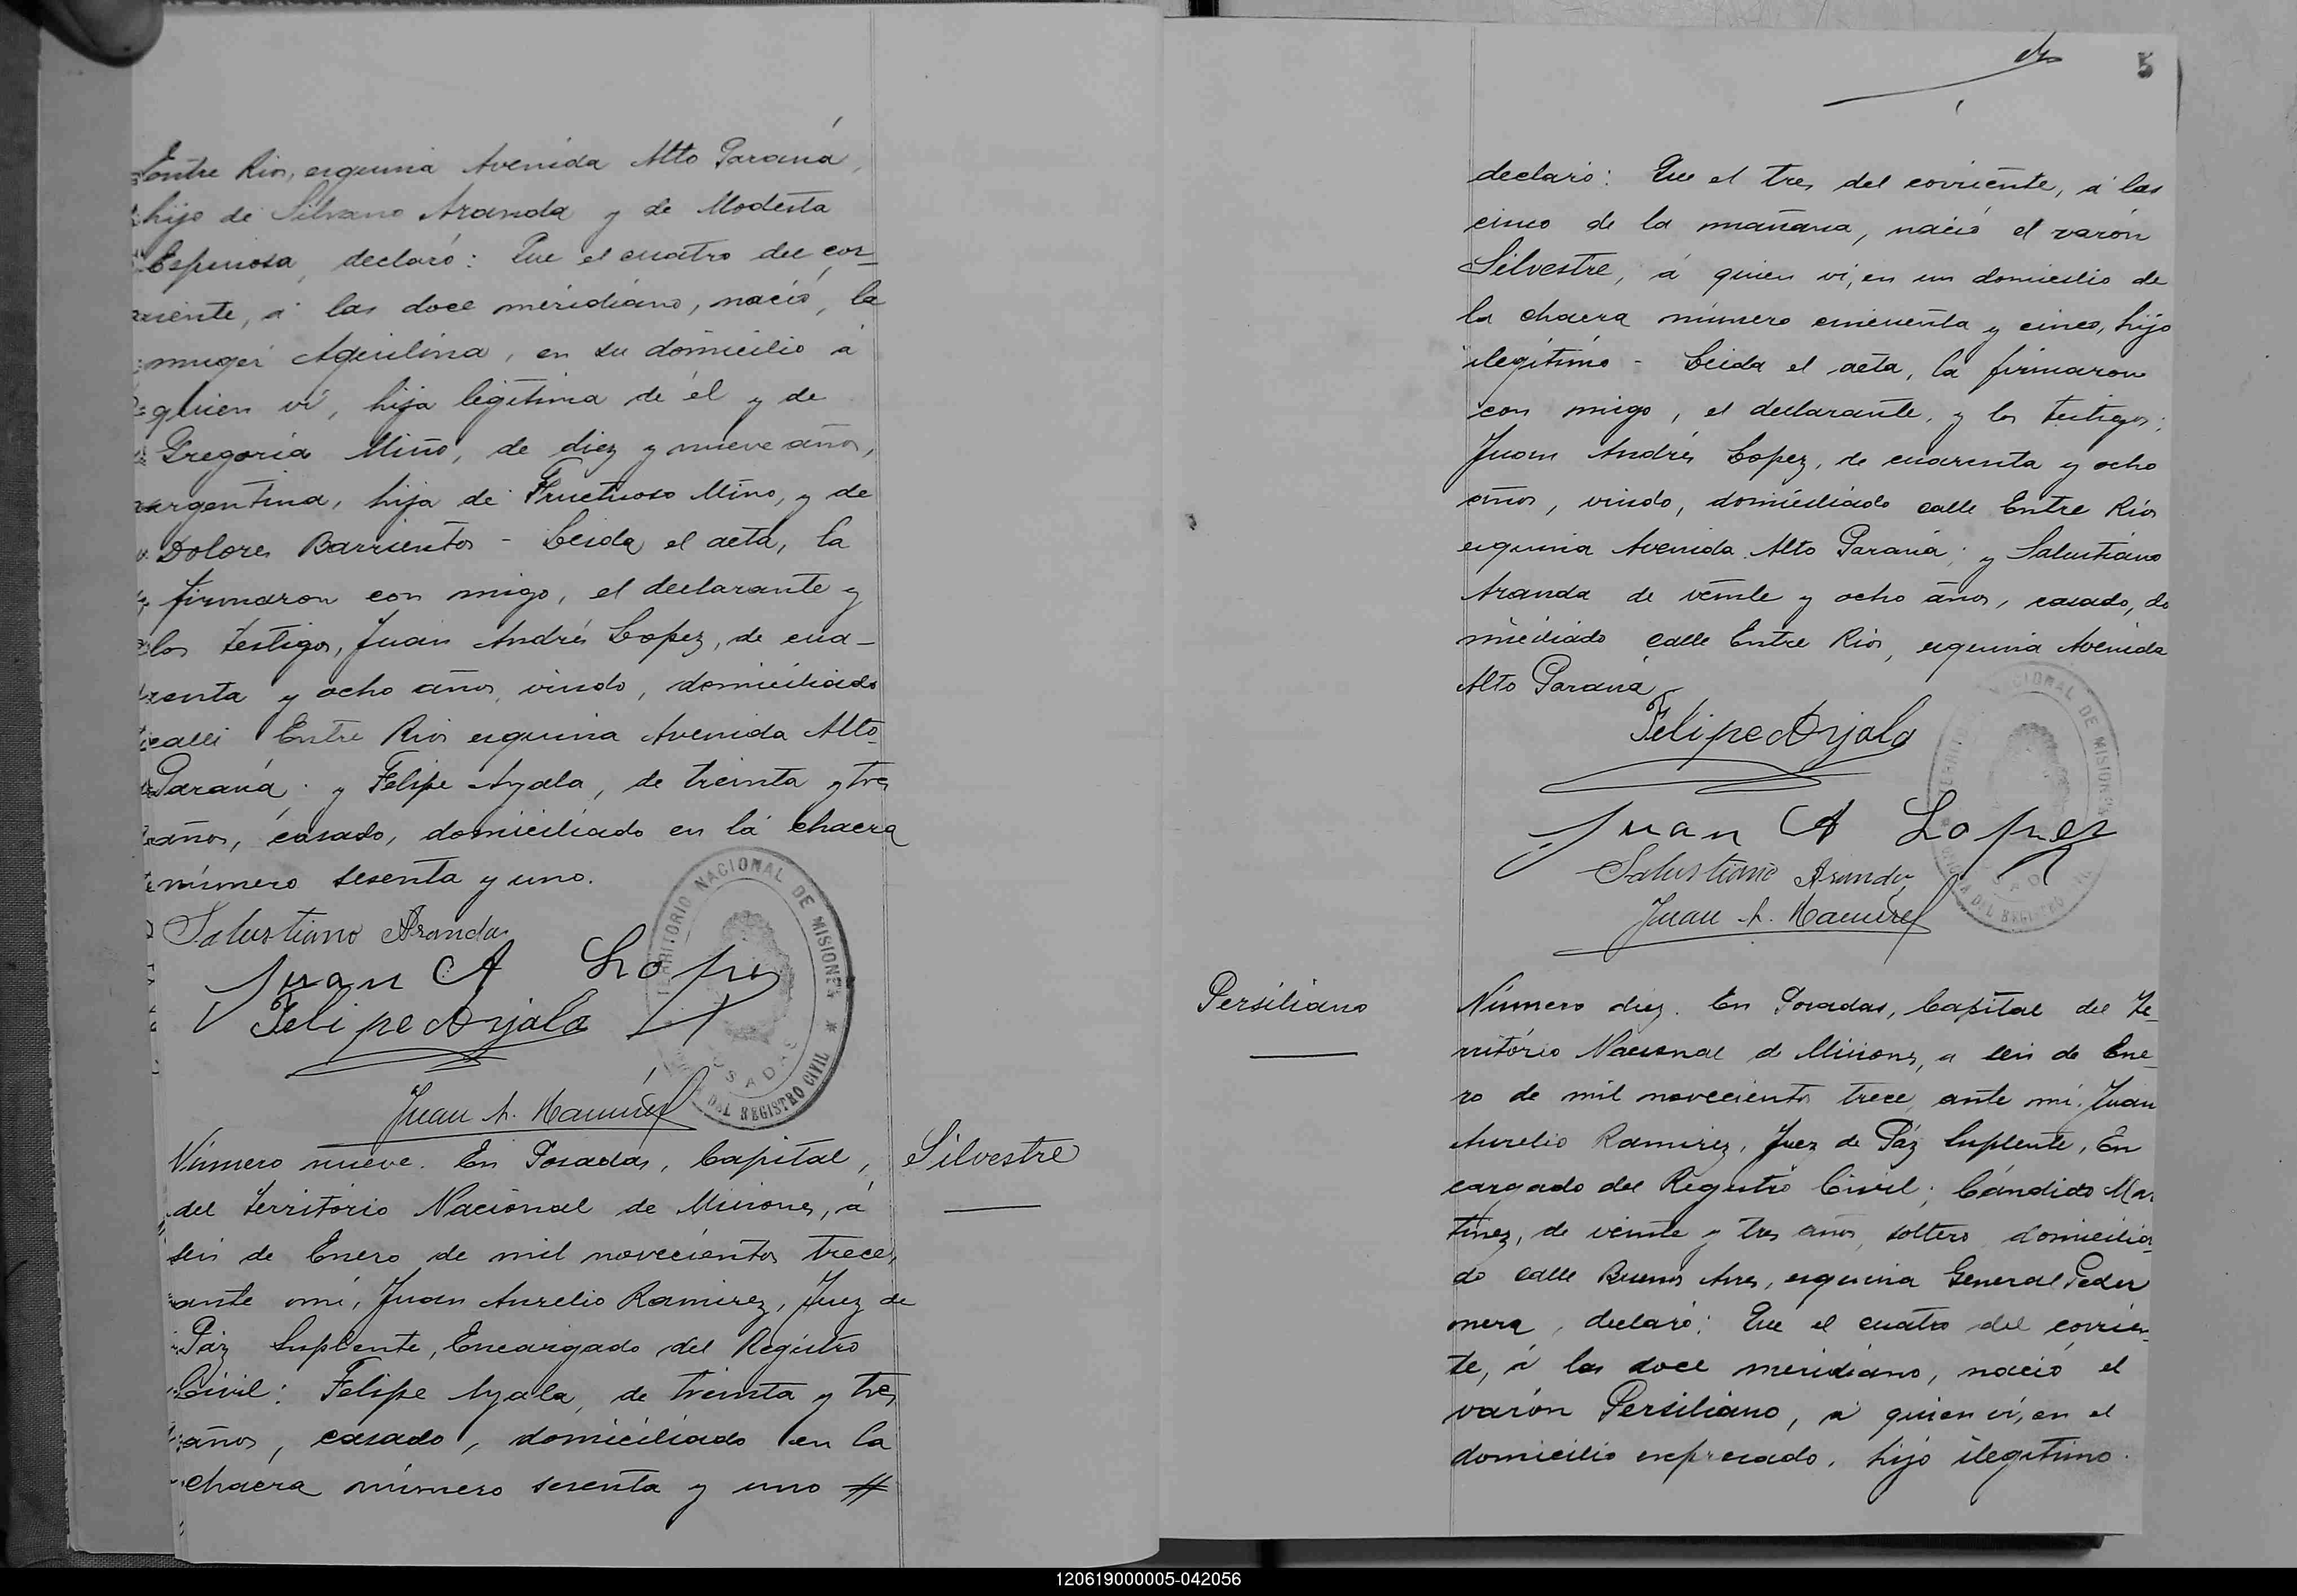 Entre Rios, esquina Avenida Alto Paraná,
hijo de Silvano Aranda y de Modesta
Espinosa, declaró: Que el cuatro del cor-
riente, á las doce meridiano, nació, la
muger Aquilina, en su domicilio á
quien ví, hija legítima de él y de
Gregoria Miño, de diez y nueve años,
argentina, hija de Fructuoso Miño, y de
Dolores Barrientos - Leida el acta, la
firmaron con migo, el declarante y
los testigos, Juan Andrés Lopez, de cua-
renta y ocho años, viudo, domiciliado
calle Entre Rios esquina Avenida Alto
Paraná; y Felipe Ayala, de treinta y tres
años, casado, domiciliado en la chacra
número sesenta y uno.
Salustiano Aranda
Juan A Lopez
Felipe Ayala
Juan A. Ramírez
TERRITORIO NACIONAL DE MISIONES
POSADAS
DEL REGISTRO CIVIL
Silvestre
Número nueve. En Posadas, Capital,
del Territorio Nacional de Misiones, á
seis de Enero de mil novecientos trece,
ante mí, Juan Aurelio Ramirez, Juez de
Páz Suplente, Encargado del Registro
Civil: Felipe Ayala, de treinta y tres
años, casado, domiciliado en la
chacra número sesenta y uno #
5
declaró: Que el tres del corriente, á las
cinco de la mañana, nació el varón
Silvestre, á quien ví, en un domicilio de
la chacra número cincuenta y cinco, hijo
ilegítimo - Leida el acta, la firmaron
con migo, el declarante, y los testigos;
Juan Andrés Lopez, de cuarenta y ocho
años, viudo, domiciliado calle Entre Rios
esquina Avenida Alto Paraná; y Salustiano
Aranda de veinte y ocho años, casado, do
miciliado calle Entre Rios, esquina Avenida
Alto Paraná
Felipe Ayala
Juan A Lopez
Salustiano Aranda
Juan A. Ramírez
NACIONAL DE MISIONES
DEL REGISTRO
Persiliano
Número diez. En Posadas, Capital del Te-
rritório Nacional de Misiones, a seis de Ene-
ro de mil novecientos trece, ante mí. Juan
Aurelio Ramirez, Juez de Páz Suplente, En
cargado del Registro Civil; Cándido Mar
tinez, de veinte y tres años, soltero domicilia-
do calle Buenos Aires, esquina General Peder
nera, declaró: Que el cuatro del corrien-
te, á las doce meridiano, nació el
varón Persiliano, á quien ví, en el
domicilio expresado, hijo ilegítimo.
120619000005-042056